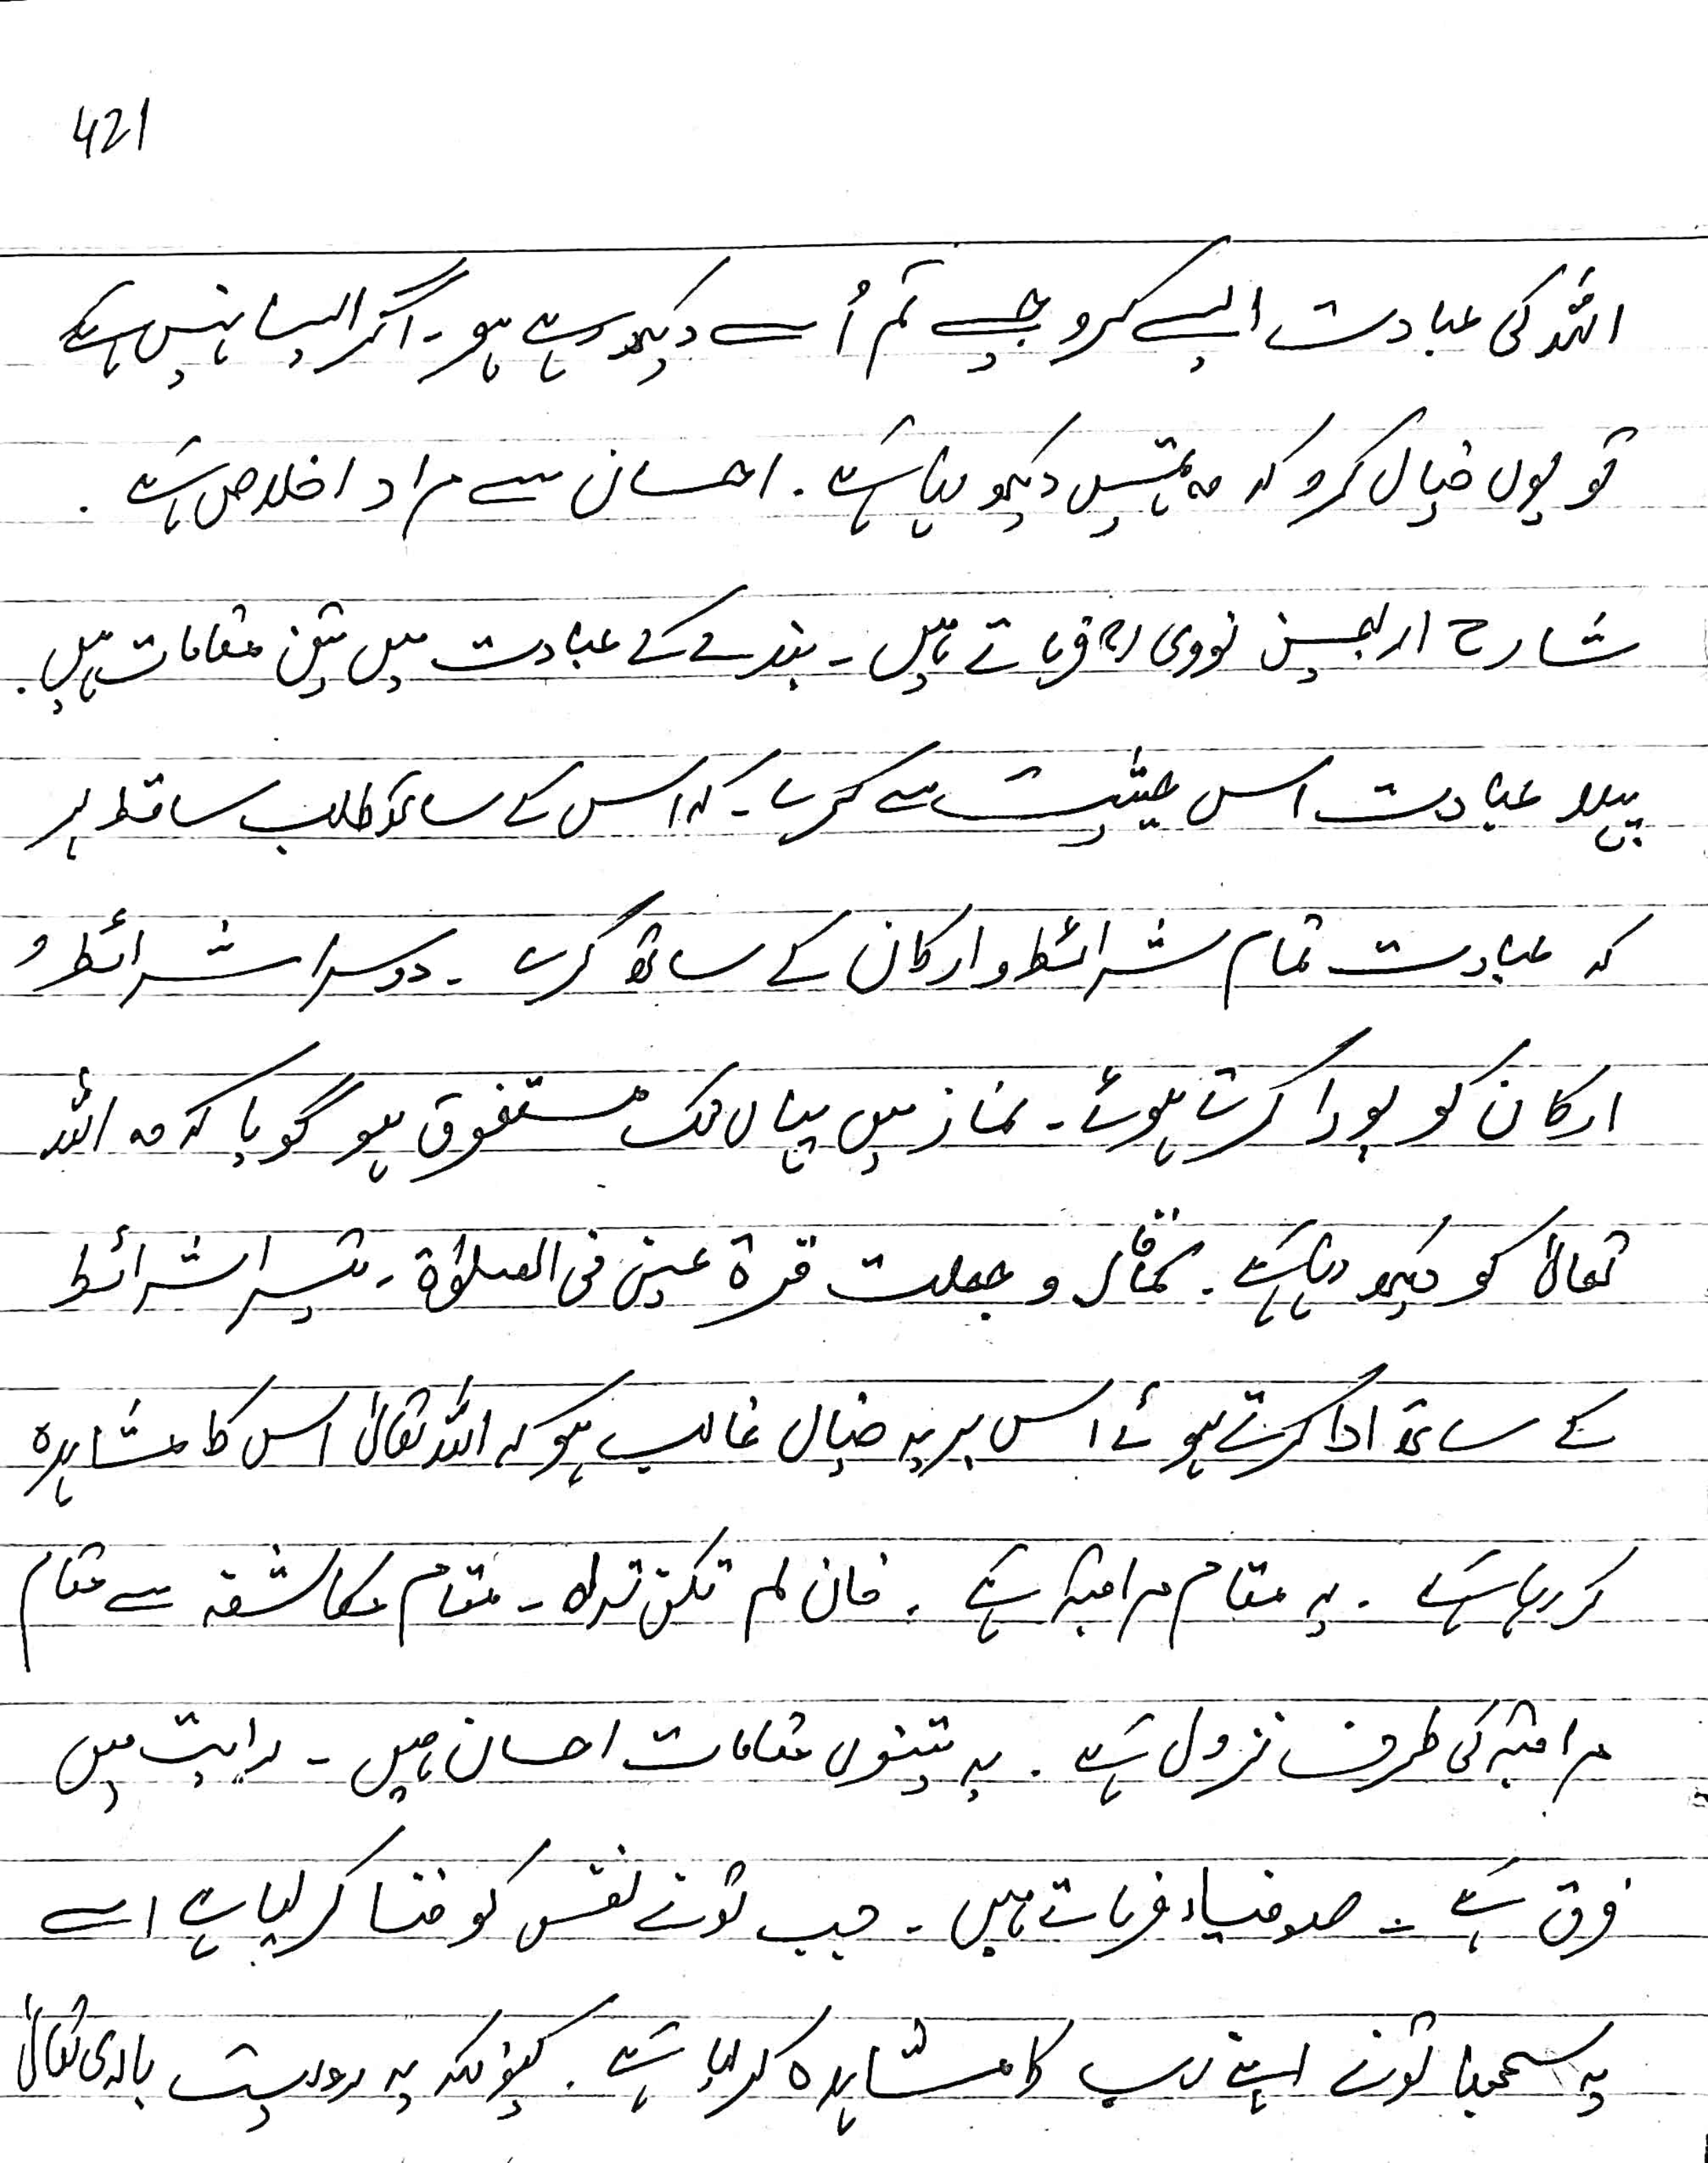 421
اللہ کی عبادت ایسے کرو جیسے تم اُسے دیکھ رہے ہو۔ اگر ایسا نہیں ہے
تو یوں خیال کرو کہ وہ تمہیں دیکھ رہا ہے۔ احسان سے مراد اخلاص ہے۔
شارح اربعین نووی رح فرماتے ہیں۔ بندے کے عبادت میں تین مقامات ہیں۔
پہلا عبادت اس حیثیت سے کرے۔ کہ اس کے ساتھ طلب ساقط ہو
کہ عبادت تمام شرائط و ارکان کے ساتھ کرے۔ دوسرا شرائط و
ارکان کو پورا کرتے ہوئے۔ نماز میں یہاں تک مستغرق ہو گویا کہ وہ اللہ
تعالیٰ کو دیکھ رہا ہے۔ کما قال و جعلت قرة عینی فی الصلوٰة۔ تیسرا شرائط
کے ساتھ ادا کرتے ہوئے اس پر یہ خیال غالب ہو کہ اللہ تعالیٰ اس کا مشاہدہ
کر رہا ہے۔ یہ مقام مراقبہ ہے۔ فان لم تکن تراہ۔ مقام مکاشفہ سے مقام
مراقبہ کی طرف نزول ہے۔ یہ تینوں مقامات احسان ہیں۔ میں
فرق ہے۔ صوفیاء فرماتے ہیں۔ جب تونے نفس کو فنا کر لیا ہے اسے
یہ سمجھنا تونے اپنے رب کا مشاہدہ کر لیا ہے۔ کیونکہ یہ رویت باری تعالیٰ